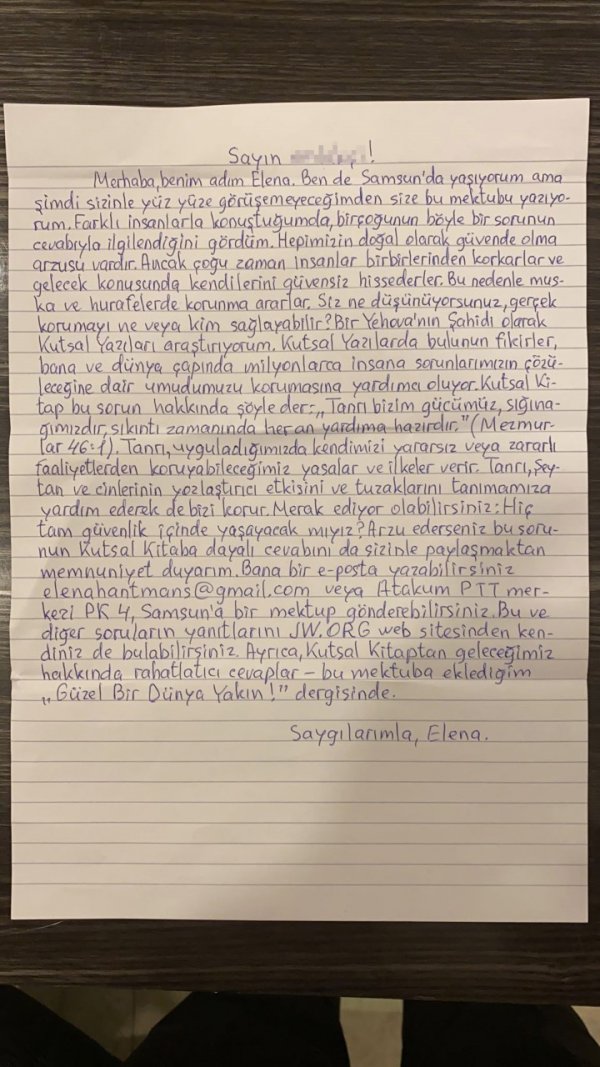 Sayın !
Merhaba, benim adım Elena. Ben de Samsun'da yaşıyorum ama
şimdi sizinle yüz yüze görüşemeyeceğimden size bu mektubu yazıyo-
rum. Farklı insanlarla konuştuğumda, birçoğunun böyle bir sorunun
cevabıyla ilgilendiğini gördüm. Hepimizin doğal olarak güvende olma
arzusu vardır. Ancak çoğu zaman insanlar birbirlerinden korkarlar ve
gelecek konusunda kendilerini güvensiz hissederler. Bu nedenle mus-
ka ve hurafelerde korunma ararlar. Siz ne düşünüyorsunuz, gerçek
korumayı ne veya kim sağlayabilir? Bir Yehova'nın Şahidi olarak
Kutsal Yazıları araştırıyorum. Kutsal Yazılarda bulunun fikirler,
bana ve dünya çapında milyonlarca insana sorunlarımızın çözü-
leceğine dair umudumuzu korumasına yardımcı oluyor. Kutsal Ki-
tap bu sorun hakkında şöyle der: „Tanrı bizim gücümüz, sığına-
ğımızdır, sıkıntı zamanında her an yardıma hazırdır." (Mezmur-
lar 46:1). Tanrı, uyguladığımızda kendimizi yararsız veya zararlı
faaliyetlerden koruyabileceğimiz yasalar ve ilkeler verir. Tanrı, Şey-
tan ve cinlerinin yozlaştırıcı etkisini ve tuzaklarını tanımamıza
yardım ederek de bizi korur. Merak ediyor olabilirsiniz: Hiç
tam güvenlik içinde yaşayacak mıyız? Arzu ederseniz bu soru-
nun Kutsal Kitaba dayalı cevabını da sizinle paylaşmaktan
memnuniyet duyarım. Bana bir e-posta yazabilirsiniz
elenahantmans@gmail.com veya Atakum PTT mer-
kezi PK 4, Samsun'a bir mektup gönderebilirsiniz. Bu ve
diğer soruların yanıtlarını JW.ORG web sitesinden ken-
diniz de bulabilirsiniz. Ayrıca, Kutsal Kitaptan geleceğimiz
hakkında rahatlatıcı cevaplar – bu mektuba eklediğim
„Güzel Bir Dünya Yakın!" dergisinde.
Saygılarımla, Elena.